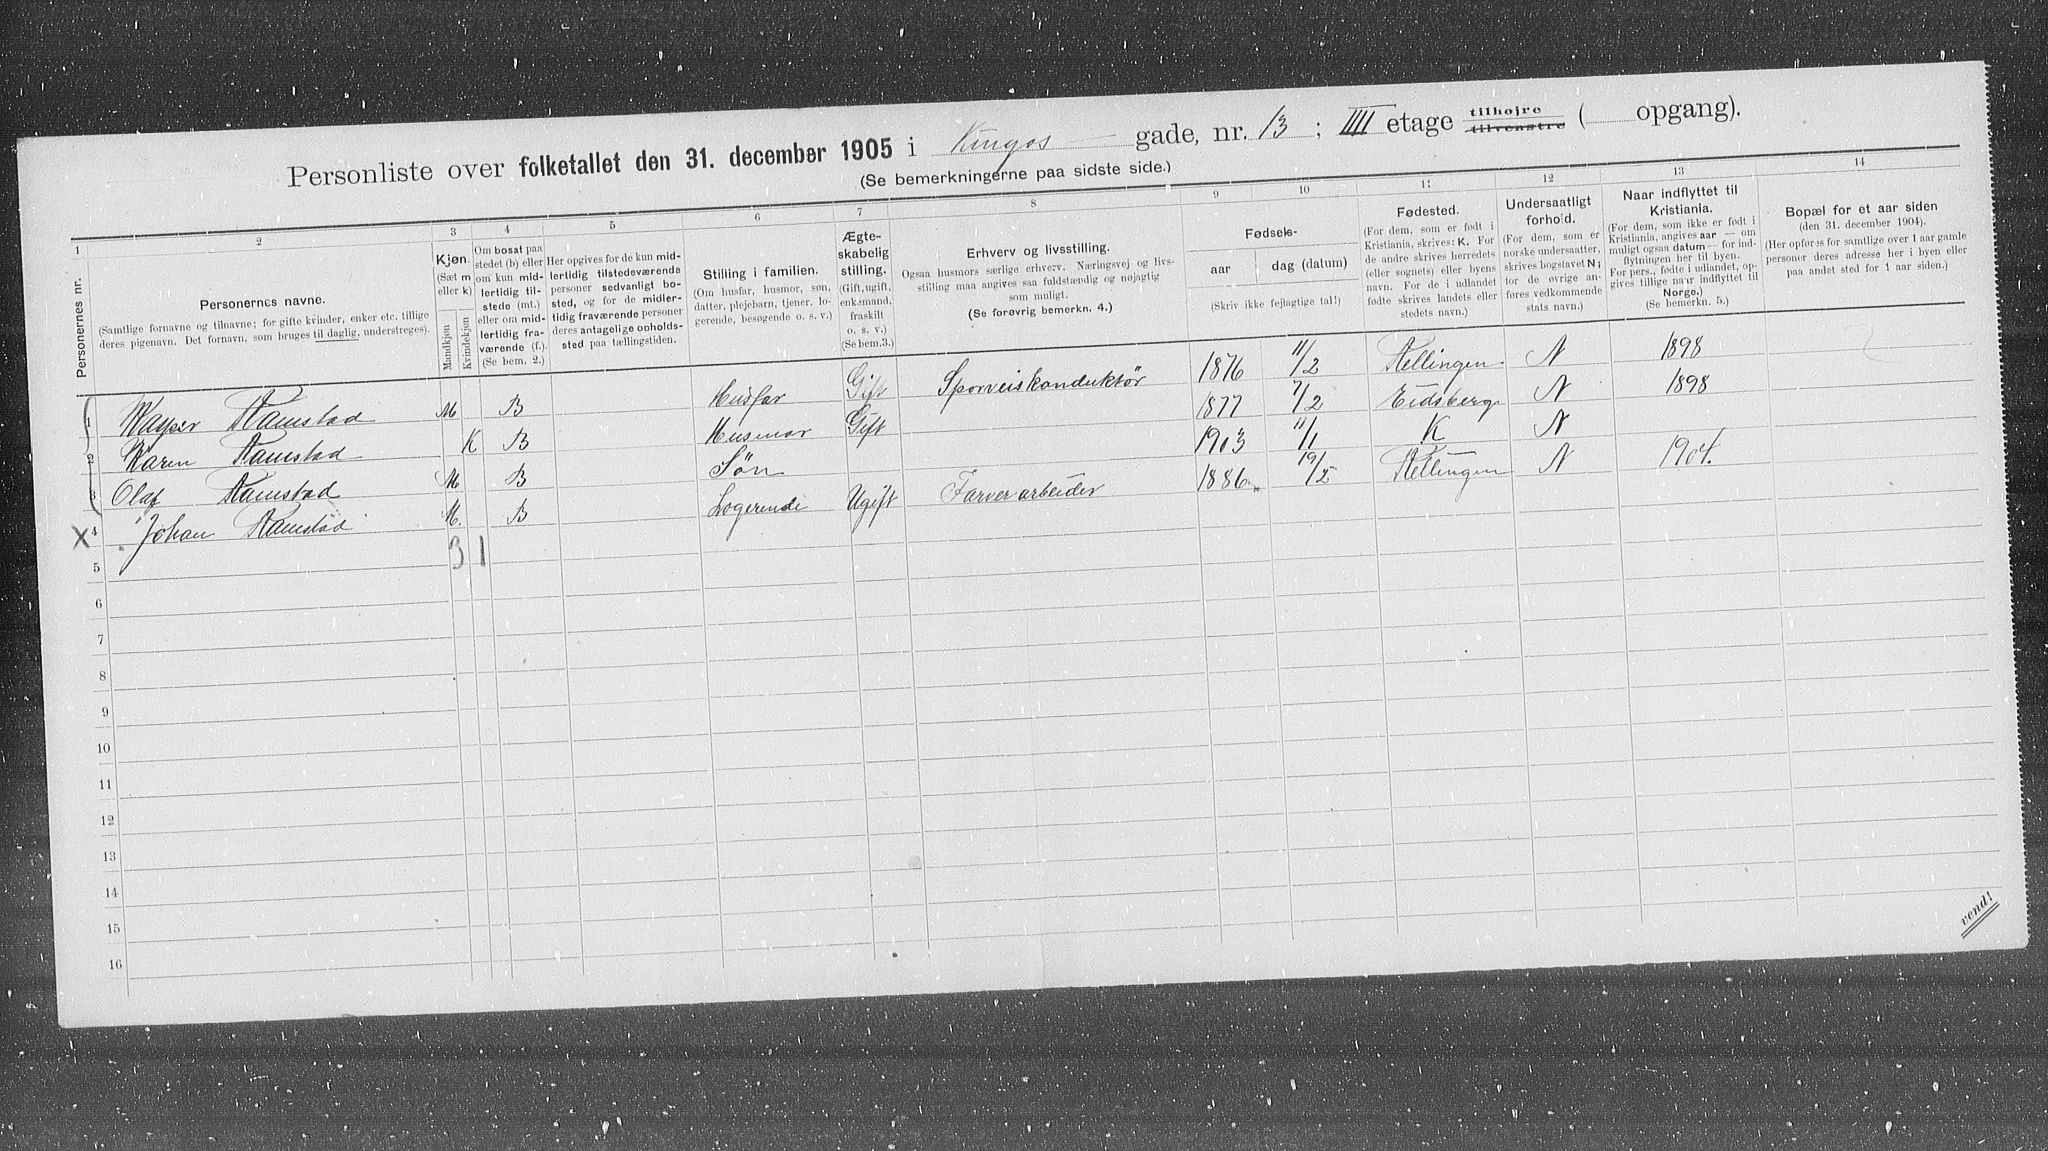 Personliste over folketallet den 31. december 1905 i Kingos gade, nr. 13 ; IIII etage tilhøjre tilvenstre ( opgang).
(Se bemerkningerne paa sidste side.)
1 2 3 4 5 6 7 8 9 10 11 12 13 14
Personernes nr.
Personernes navne.
(Samtlige fornavne og tilnavne; for gifte kvinder, enker etc. tillige
deres pigenavn. Det fornavn, som bruges til daglig, understreges).
Kjøn.
(Sæt m
eller k)
Mandkjøn
Kvindekjøn
Om bosat paa
stedet (b) eller
om kun mid-
lertidig til-
stede (mt.)
eller om mid-
lertidig fra-
værende (f.)
(Se bem. 2.)
Her opgives for de kun mid-
lertidig tilstedeværende
personer sedvanlig bo-
sted, og for de midler-
tidig fraværende personer
deres antagelige opholds-
sted paa tællingstiden.
Stilling i familien.
(Om husfar, husmor, søn,
datter, plejebarn, tjener, lo-
gerende, besøgende o. s. v.)
Ægte-
skabelig
stilling.
(Gift, ugift,
enkemand,
fraskilt
o. s. v.)
(Se bem.3.)
Erhverv og livsstilling.
Ogsaa husmors særlige erhverv. Næringsvej og livs-
stilling maa angives saa fuldstændig og nøjagtig
som muligt.
(Se forøvrig bemerkn. 4.)
Fødsels-
aar
dag (datum)
(Skriv ikke fejlagtige tal!)
Fødested.
(For dem, som er født i
Kristiania, skrives: K. For
de andre skrives herredets
(eller sognets) eller byens
navn. For de i udlandet
fødte skrives landets eller
stedets navn.)
Undersaatligt
forhold.
(For dem, som er
norske undersaatter,
skrives bogstavet N;
for de øvrige an-
føres vedkommende
stats navn.)
Naar indflyttet til
Kristiania.
(For dem, som ikke er født i
Kristiania, angives aar — om
muligt ogsaa datum — for ind-
flytningen her til byen.
For pers., fødte i udlandet, op-
gives tillige naar indflyttet til
Norge.)
(Se bemerkn. 5.)
Bopæl for et aar siden
(den 31. december 1904).
(Her opføres for samtlige over 1 aar gamle
personer deres adresse her i byen eller
paa andet sted for 1 aar siden.)
1 Kasper Ramstad M B Husfar Gift Sporveiskonduktør 1876 11/2 1898
2 Karen Ramstad K B Husmor Gift 1877 7/2 Eidsberg N 1898
3 Olaf Ramstad M B Søn 1903 11/1 K N
X 4 Johan Ramstad M. B Logerende Ugift Farveriarbeider 1886 19/5 N 1904.
3 1
5
6
7
8
9
10
11
12
13
14
15
16
vend!